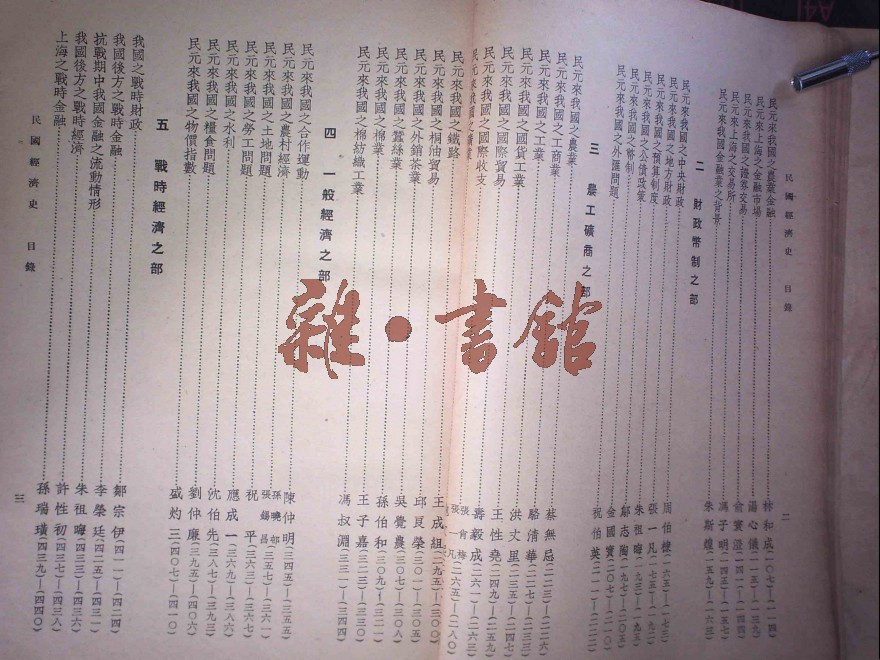 民國經濟史 目錄
二
民元來我國之農業金融 林和成(一〇七)—(一一四)
民元來上海之金融市場 楊心儀(一一五)—(一三九)
民元來我國之證券交易 俞寰澄(一四一)—(一四四)
民元來上海之交易所 馮子明(一四五)—(一五七)
民元來我國金融業之背景 朱斯煌(一五九)—(一六三)
二 財政幣制之部
民元來我國之中央財政 周伯棣(一六五)—(一七三)
民元來我國之地方財政 張一凡(一七五)—(一九二)
民元來我國之預算制度 朱祖晦(一九三)—(一九五)
民元來我國之公債政策 鄒志陶(一九七)—(二〇五)
民元來我國之幣制 金國寶(二〇七)—(二一〇)
民元來我國之外匯問題 祝伯英(二一一)—(二二二)
三 農工礦商之部
民元來我國之農業 蔡無忌(二二三)—(二二六)
民元來我國之工商業 駱清華(二二七)—(二三三)
民元來我國之工業 洪文里(二三五)—(二四七)
民元來我國之國貨工業 王性堯(二四九)—(二五二)
民元來我國之國際貿易 壽毅成(二六一)—
民元來我國之國際收支
民元來我國之鑛業 張一凡(二六五)—(二八〇)
民元來我國之鐵路
民元來我國之桐油貿易 王成組(二九五)—(三〇〇)
民元來我國之外銷茶業 邱良榮(三〇一)—(三〇五)
民元來我國之蠶絲業 吳覺農(三〇七)—(三〇八)
民元來我國之棉業 孫伯和(三〇九)—(三二一)
民元來我國之棉紡織工業 王子嘉(三二三)—(三三〇)
馮叔淵(三三一)—(三四四)
四 一般經濟之部
民元來我國之合作運動 陳仲明(三四五)—(三五五)
民元來我國之農村經濟 孫曉邨 張錫昌(三五七)—(三六一)
民元來我國之土地問題 祝平(三六三)—(三六七)
民元來我國之勞工問題 應成一(三六九)—(三八六)
民元來我國之水利 沈伯先(三八七)—(三九三)
民元來我國之糧食問題 劉仲廉(三九五)—(四〇六)
民元來我國之物價指數 盛灼三(四〇七)—(四一〇)
五 戰時經濟之部
我國之戰時財政 鄒宗伊(四一一)—(四二四)
我國後方之戰時金融 李榮廷(四二五)—(四三一)
抗戰期中我國金融之流動情形 朱祖晦(四三三)—(四三六)
我國後方之戰時經濟 許性初(四三七)—(四三八)
上海之戰時金融 孫瑞璜(四三九)—(四四〇)
民國經濟史 目錄
三
雜·書館